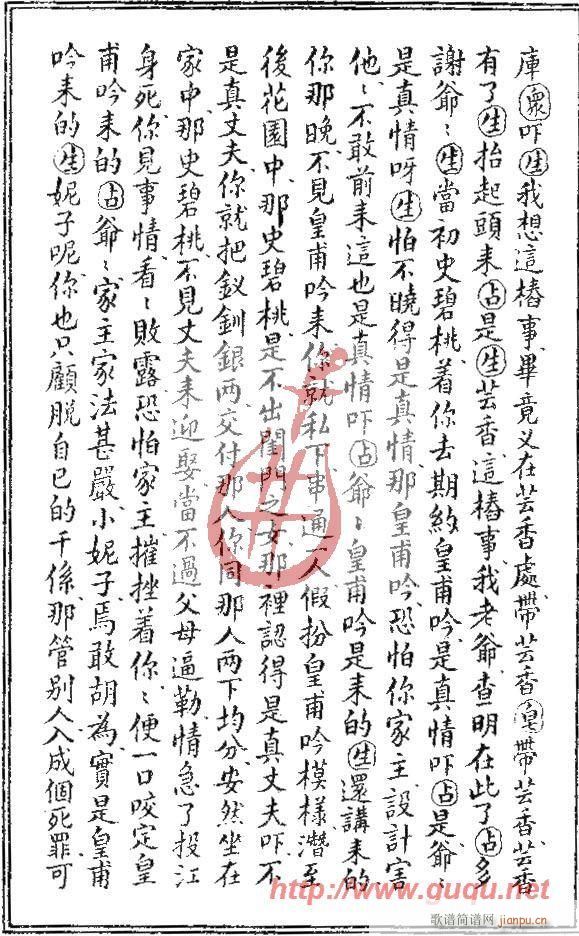 庫眾吓生我想這樁事畢竟又在芸香處帶芸香皂帶芸香芸香
有了生抬起頭来占是生芸香這樁事我老爺查明在此了占多
謝爺〻生當初史碧桃着你去期約皇甫吟是真情吓占是爺〻
是真情呀生怕不曉得是真情那皇甫吟恐怕你家主設計害
他〻不敢前来這也是真情吓占爺〻皇甫吟是来的生還講来的
你那晚不見皇甫吟来你就私下串通一人假扮皇甫吟模樣潛至
後花園中那史碧桃是不出閨門之女那裡認得是真丈夫吓不
是真丈夫你就把釵釧銀两交付那人你同那人两下均分安然坐在
家中那史碧桃不見丈夫来迎娶當不過父母逼勒情急了投江
身死你見事情看〻敗露恐怕家主摧挫着你〻便一口咬定皇
甫吟来的占爺〻家主家法甚嚴小妮子焉敢胡為實是皇甫
吟来的生妮子呢你也只顧脱自已的干係那管别人入成個死罪可
http://www.guqu.net
歌谱简谱网
jianpu.cn